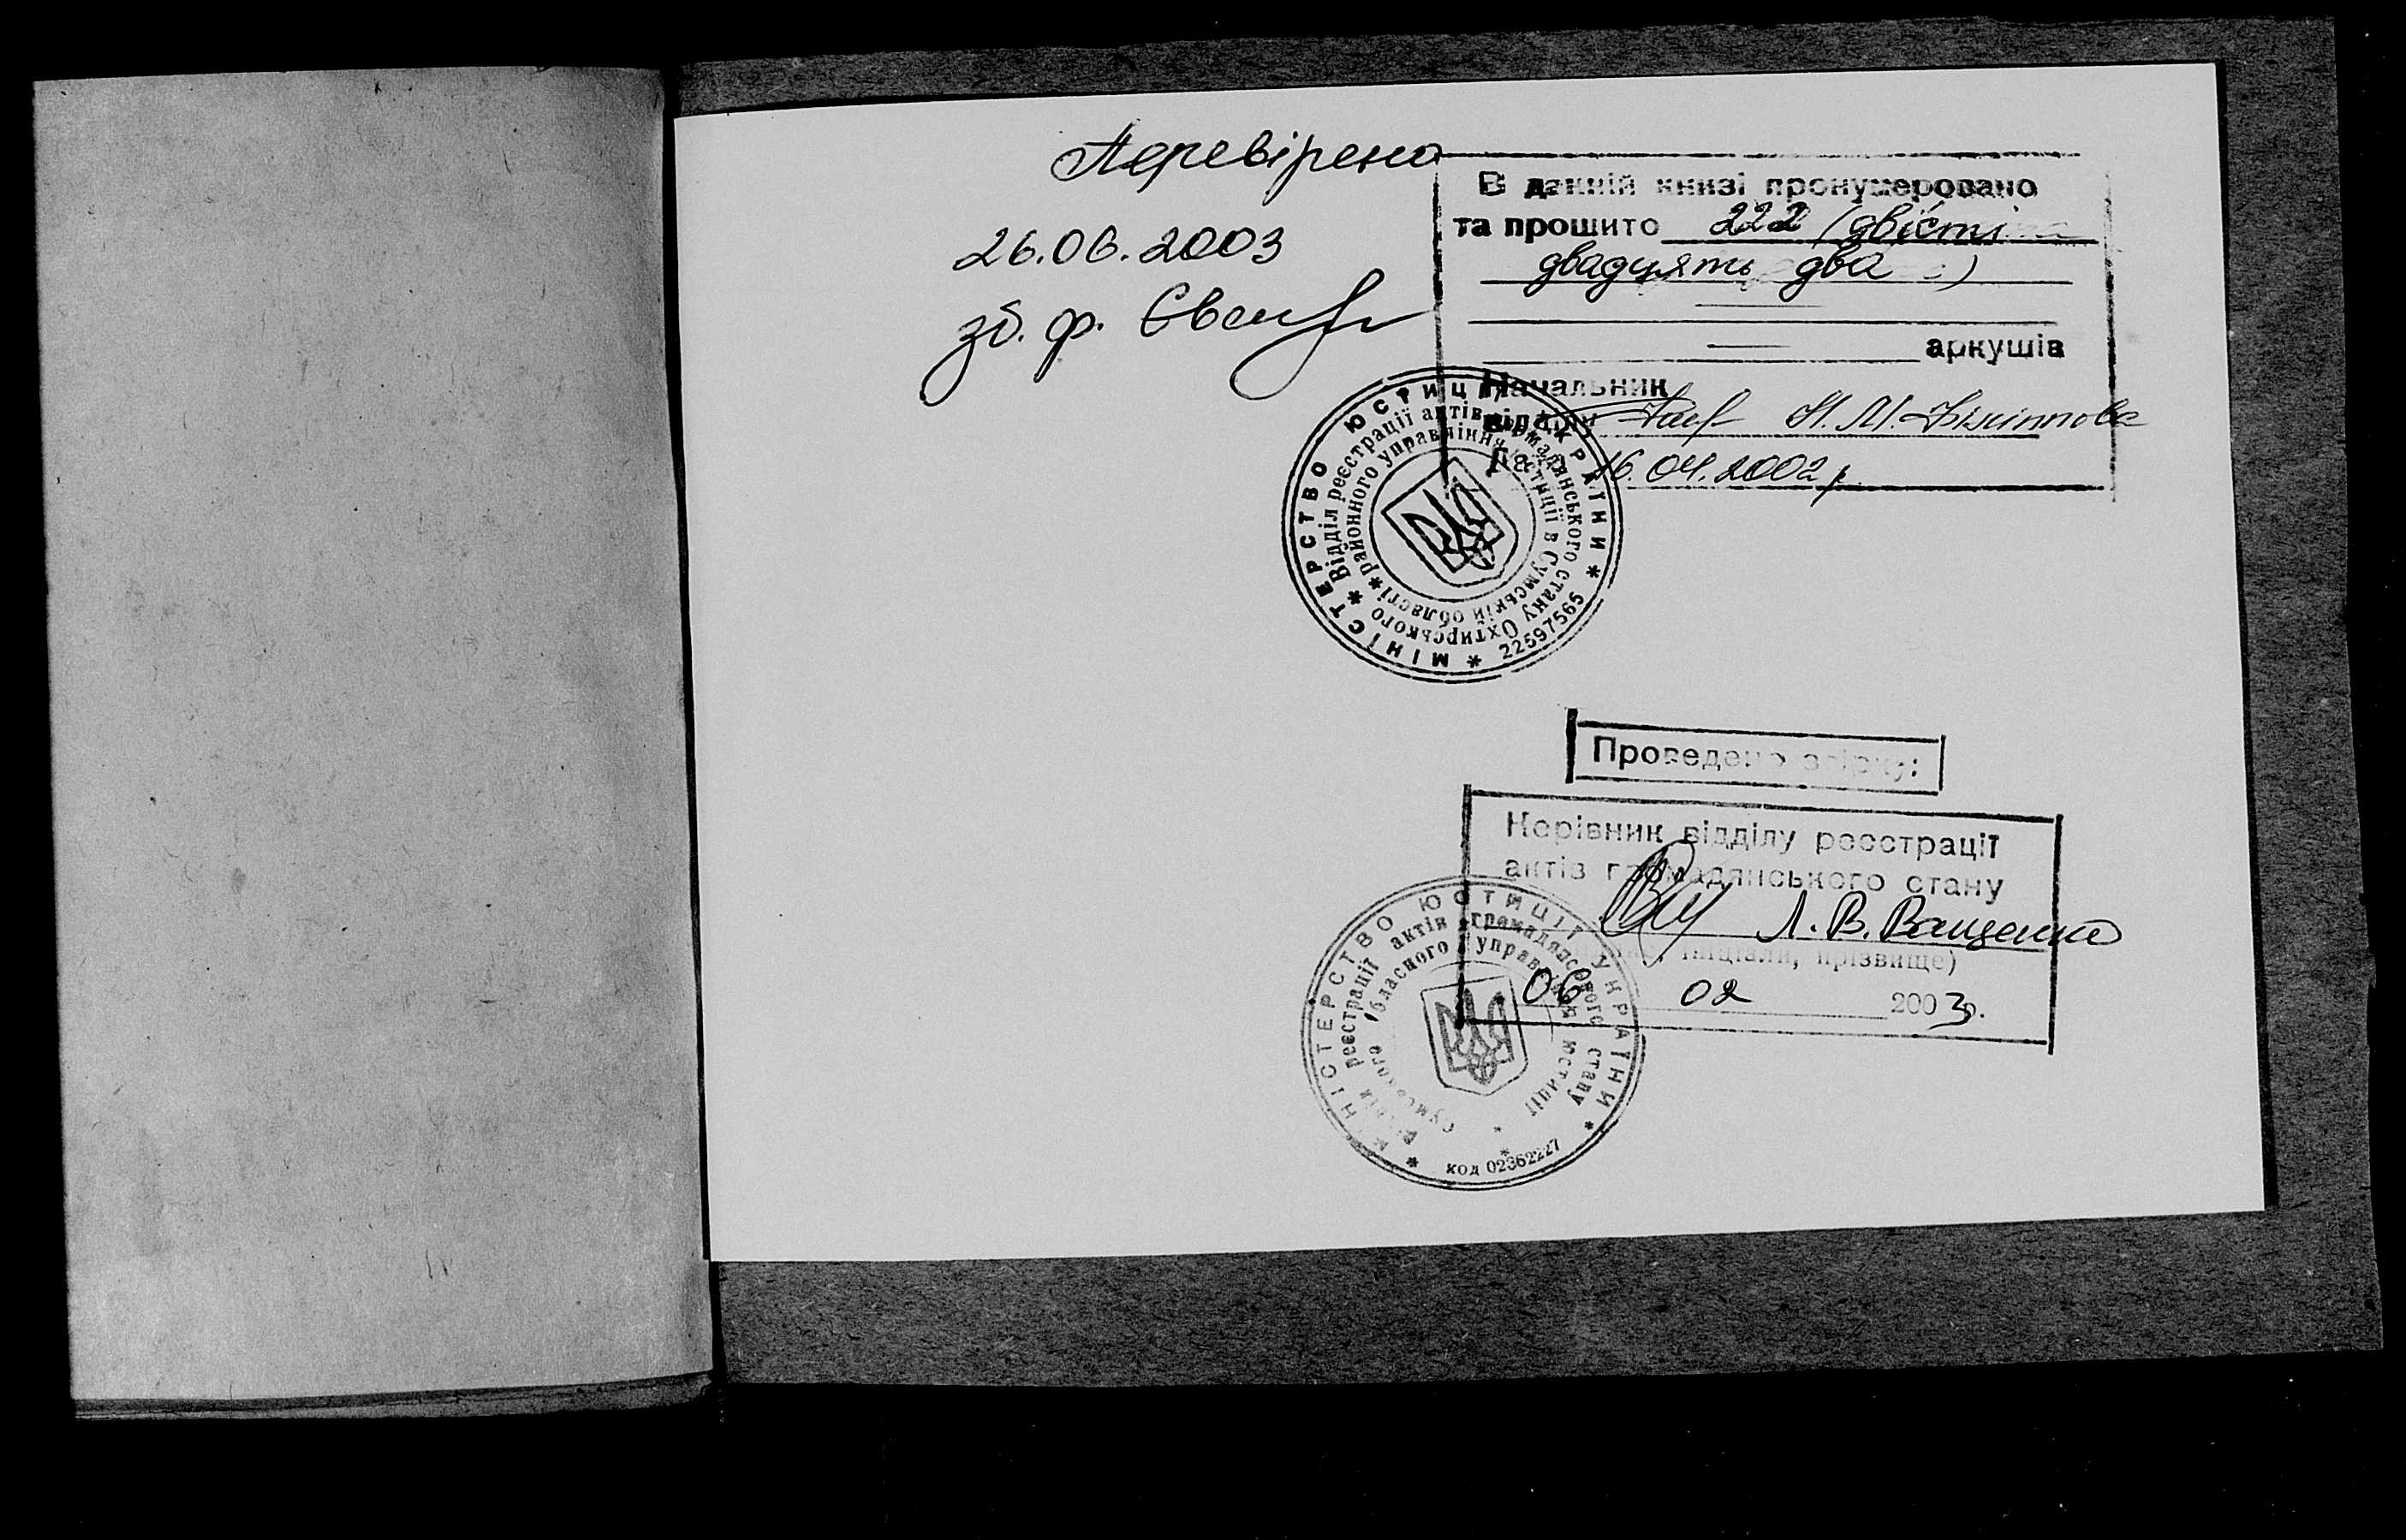 Перевірено
26.06.2003
зб. ф.
В данній книзі пронумеровано
та прошито 222 (двісті
двадцять два)
аркушів
Начальник
відділу Н.М.
Дата 16.04.2002 р.
МІНІСТЕРСТВО ЮСТИЦІЇ УКРАЇНИ * 22597565 *
* Відділ реєстрації актів громадянського стану Охтирського
* районного управління юстиції в Сумській області
Проведено звірку:
Керівник відділу реєстрації
актів громадянського стану
Л.В. Ващенко
ініціали, прізвище)
06 02 2003р.
МІНІСТЕРСТВО ЮСТИЦІЇ УКРАЇНИ * код 02362227 *
Відділ реєстрації актів громадянського стану
Сумського обласного управління юстиції